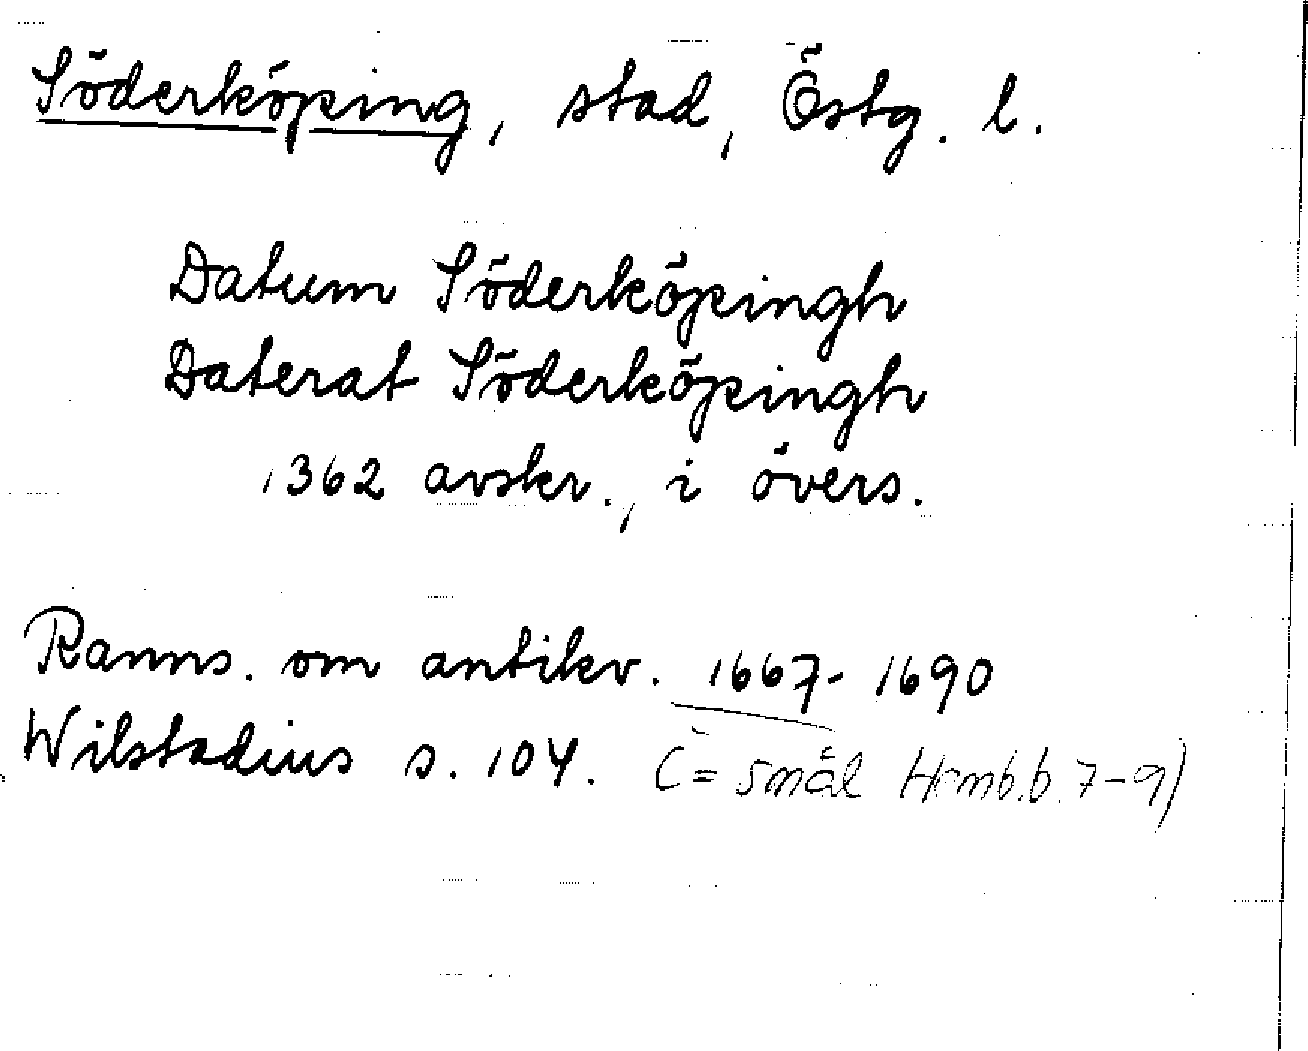 Söderköping, stad, Östg. l.
Datum Söderköpingh
Daterat Söderköpingh
1362 avskr., i övers.
Ranns. om antikv. 1667-1690
Wilstadius s. 104. (= Smål Hembb. 7-9)